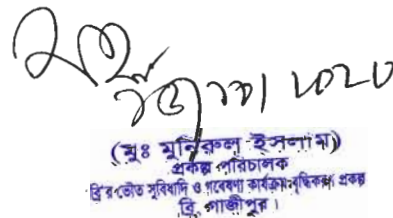 (মুঃ মুনিরুল ইসলাম)
প্রকল্প পরিচালক
ব্রি'র ভৌত সুবিধাদি ও গবেষণা কার্যক্রম বৃদ্ধিকরণ প্রকল্প
ব্রি, গাজীপুর।